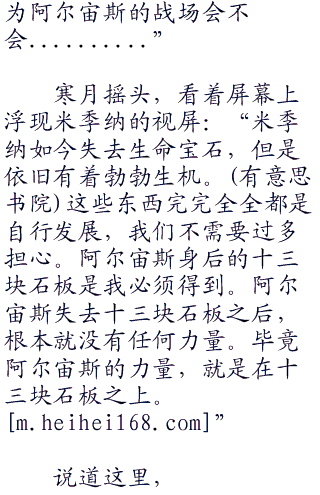 为阿尔宙斯的战场会不
会..........”
寒月摇头，看着屏幕上
浮现米季纳的视屏：“米季
纳如今失去生命宝石，但是
依旧有着勃勃生机。(有意思
书院)这些东西完完全全都是
自行发展，我们不需要过多
担心。阿尔宙斯身后的十三
块石板是我必须得到。阿尔
宙斯失去十三块石板之后，
根本就没有任何力量。毕竟
阿尔宙斯的力量，就是在十
三块石板之上。
[m.heihei168.com]”
说道这里，